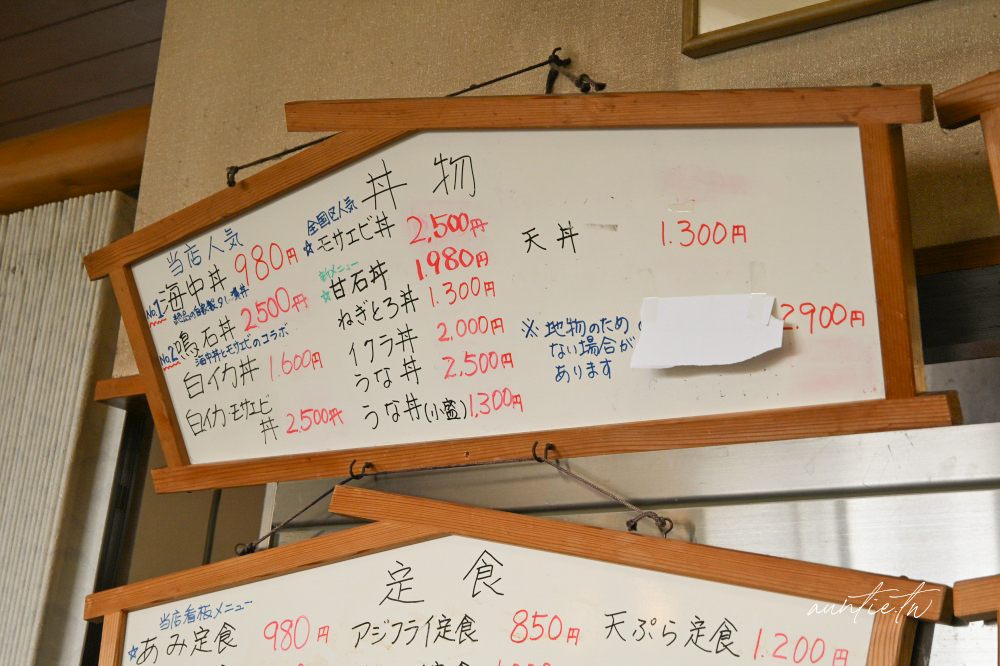 丼物
当店人気
No.1 海中丼 980円
No.2 鳴石丼 2500円
海中丼とモサエビのコラボ
白イカ丼 1,600円
白イカモサエビ丼 2,500円
全国区人気
☆モサエビ丼 2,500円
新メニュー
☆甘石丼 1.980円
ねぎとろ丼 1.300円
イクラ丼 2,000円
うな丼 2,500円
うな丼(小盛) 1,300円
天丼 1.300円
2.900円
※地物のため
ない場合が
あります
定食
当店看板メニュー
☆あみ定食 980円
アジフライ定食 850円
天ぷら定食 1.200円
auntie.tw